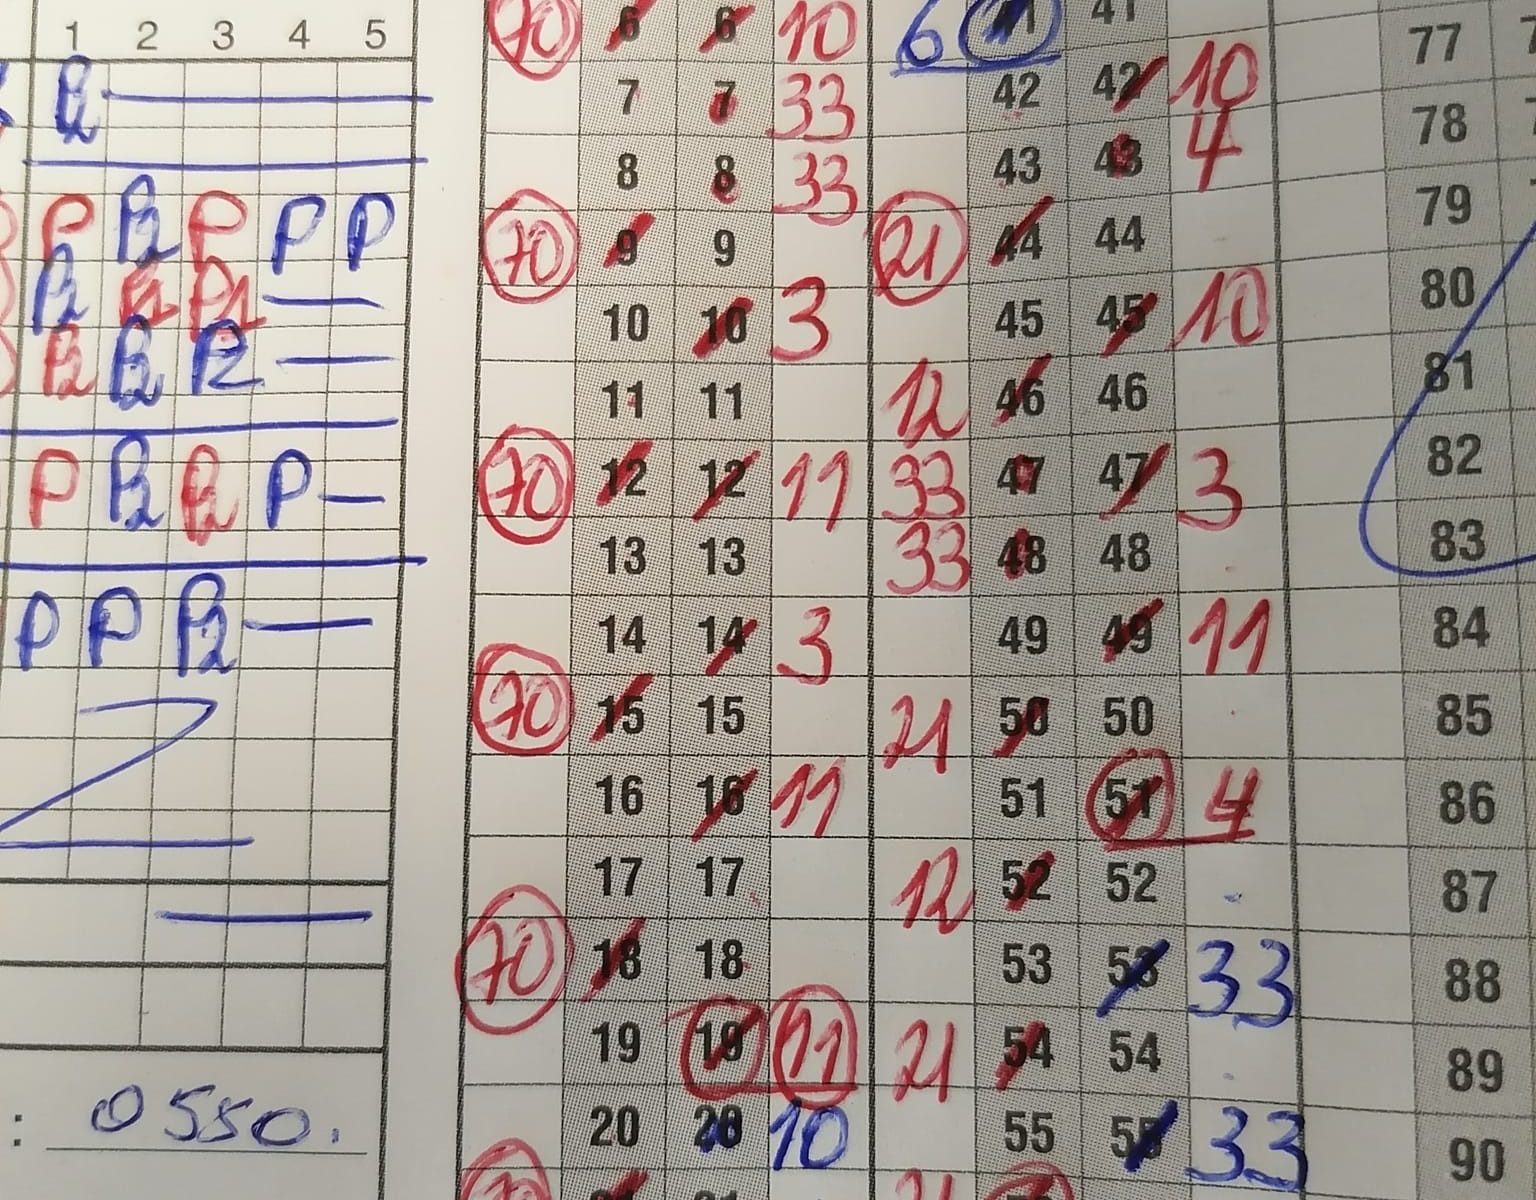 1 2 3 4 5
P2
P P2 P P P
P2 P2 P1
P2 P2 P2
P P2 P2 P
P P P2
: 0550.
70 6 6 10 6 41 41 77
7 7 33 42 42 10 78
8 8 33 43 43 4 79
70 9 9 21 44 44 80
10 10 3 45 45 10 81
11 11 12 46 46 82
70 12 12 11 33 47 47 3 83
13 13 33 48 48 84
14 14 3 49 49 11 85
70 15 15 21 50 50 86
16 16 11 51 51 4 87
17 17 12 52 52 88
70 18 18 53 53 33 89
19 19 11 21 54 54 90
20 20 10 55 55 33
70 21